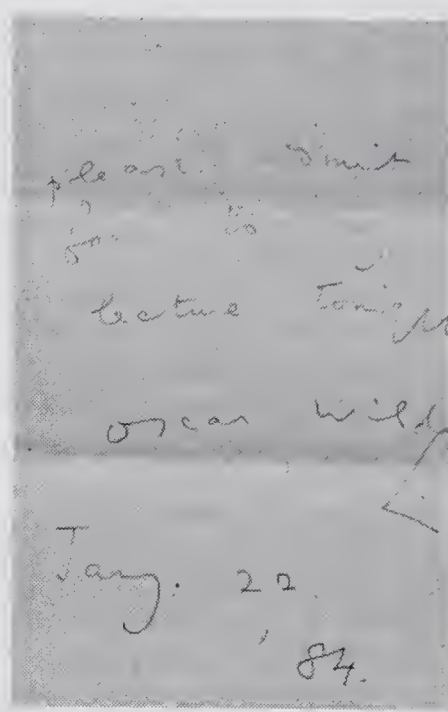 please admit
for to
lecture Tonight
Oscar Wilde
Jany. 22.
84.